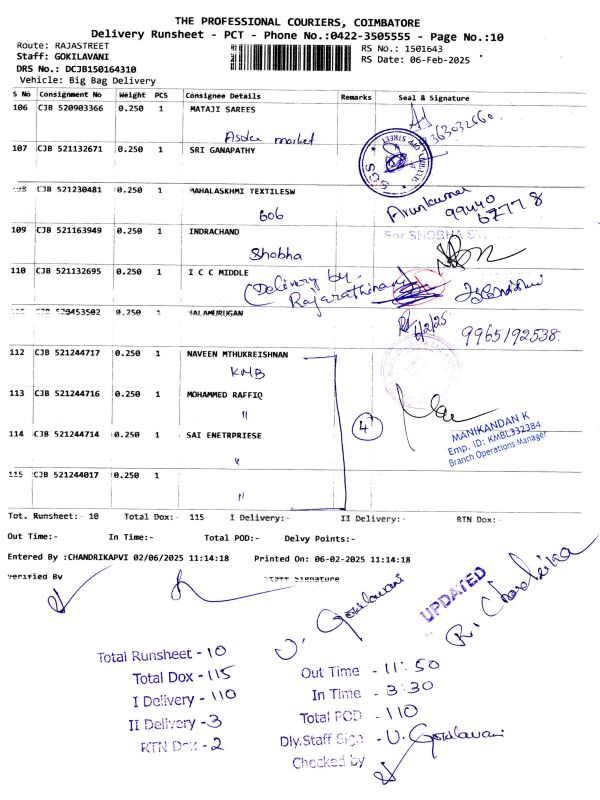 THE PROFESSIONAL COURIERS, COIMBATORE
Delivery Runsheet - PCT - Phone No.:0422-3505555 - Page No.:10
Route: RAJASTREET
RS No.: 1501643
Staff: GOKILAVANI
RS Date: 06-Feb-2025
DRS No.: DCJB150164310
Vehicle: Big Bag Delivery
S No Consignment No Weight PCS Consignee Details Remarks Seal & Signature
106 CJB 520903366 0.250 1 MATAJI SAREES
market
107 CJB 521132671 0.250 1 SRI GANAPATHY
108 CJB 521230481 0.250 1 MAHALASKHMI TEXTILESW
606
Arunkumar
99440
67778
109 CJB 521163949 0.250 1 INDRACHAND
For SHOBHA
Shobha
110 CJB 521132695 0.250 1 I C C MIDDLE
(Delivery by.
Rajarathinam)
CJB 520453502 0.250 1 MALAMURUGAN
6/2/25
9965192538.
112 CJB 521244717 0.250 1 NAVEEN MTHUKREISHNAN
KMB
113 CJB 521244716 0.250 1 MOHAMMED RAFFIQ
"
4
MANIKANDAN K
Emp. ID: KMBL332384
Branch Operations Manager
114 CJB 521244714 0.250 1 SAI ENETRPRIESE
"
115 CJB 521244017 0.250 1
"
Tot. Runsheet:- 10 Total Dox:- 115 I Delivery:- II Delivery:- RTN Dox:-
Out Time:- In Time:- Total POD:- Delvy Points:-
Entered By :CHANDRIKAPVI 02/06/2025 11:14:18 Printed On: 06-02-2025 11:14:18
Verified By Staff Signature
UPDATED
Total Runsheet - 10
Total Dox - 115
I Delivery - 110
II Delivery - 3
RTN Dox - 2
Out Time - 11:50
In Time - 3:30
Total POD - 110
Dly.Staff Sign - U. Gokilavani
Checked by